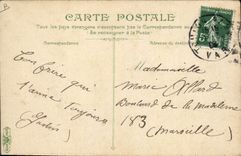 CARTE POSTALE
Tous les pays étrangers n'acceptent pas la Correspondance au recto
(Se renseigner à la Poste)
Correspondance
Ton frère qui
t'aime toujours
Mademoiselle
Marie
Boulevard de la Madeleine
183
(Marseille)